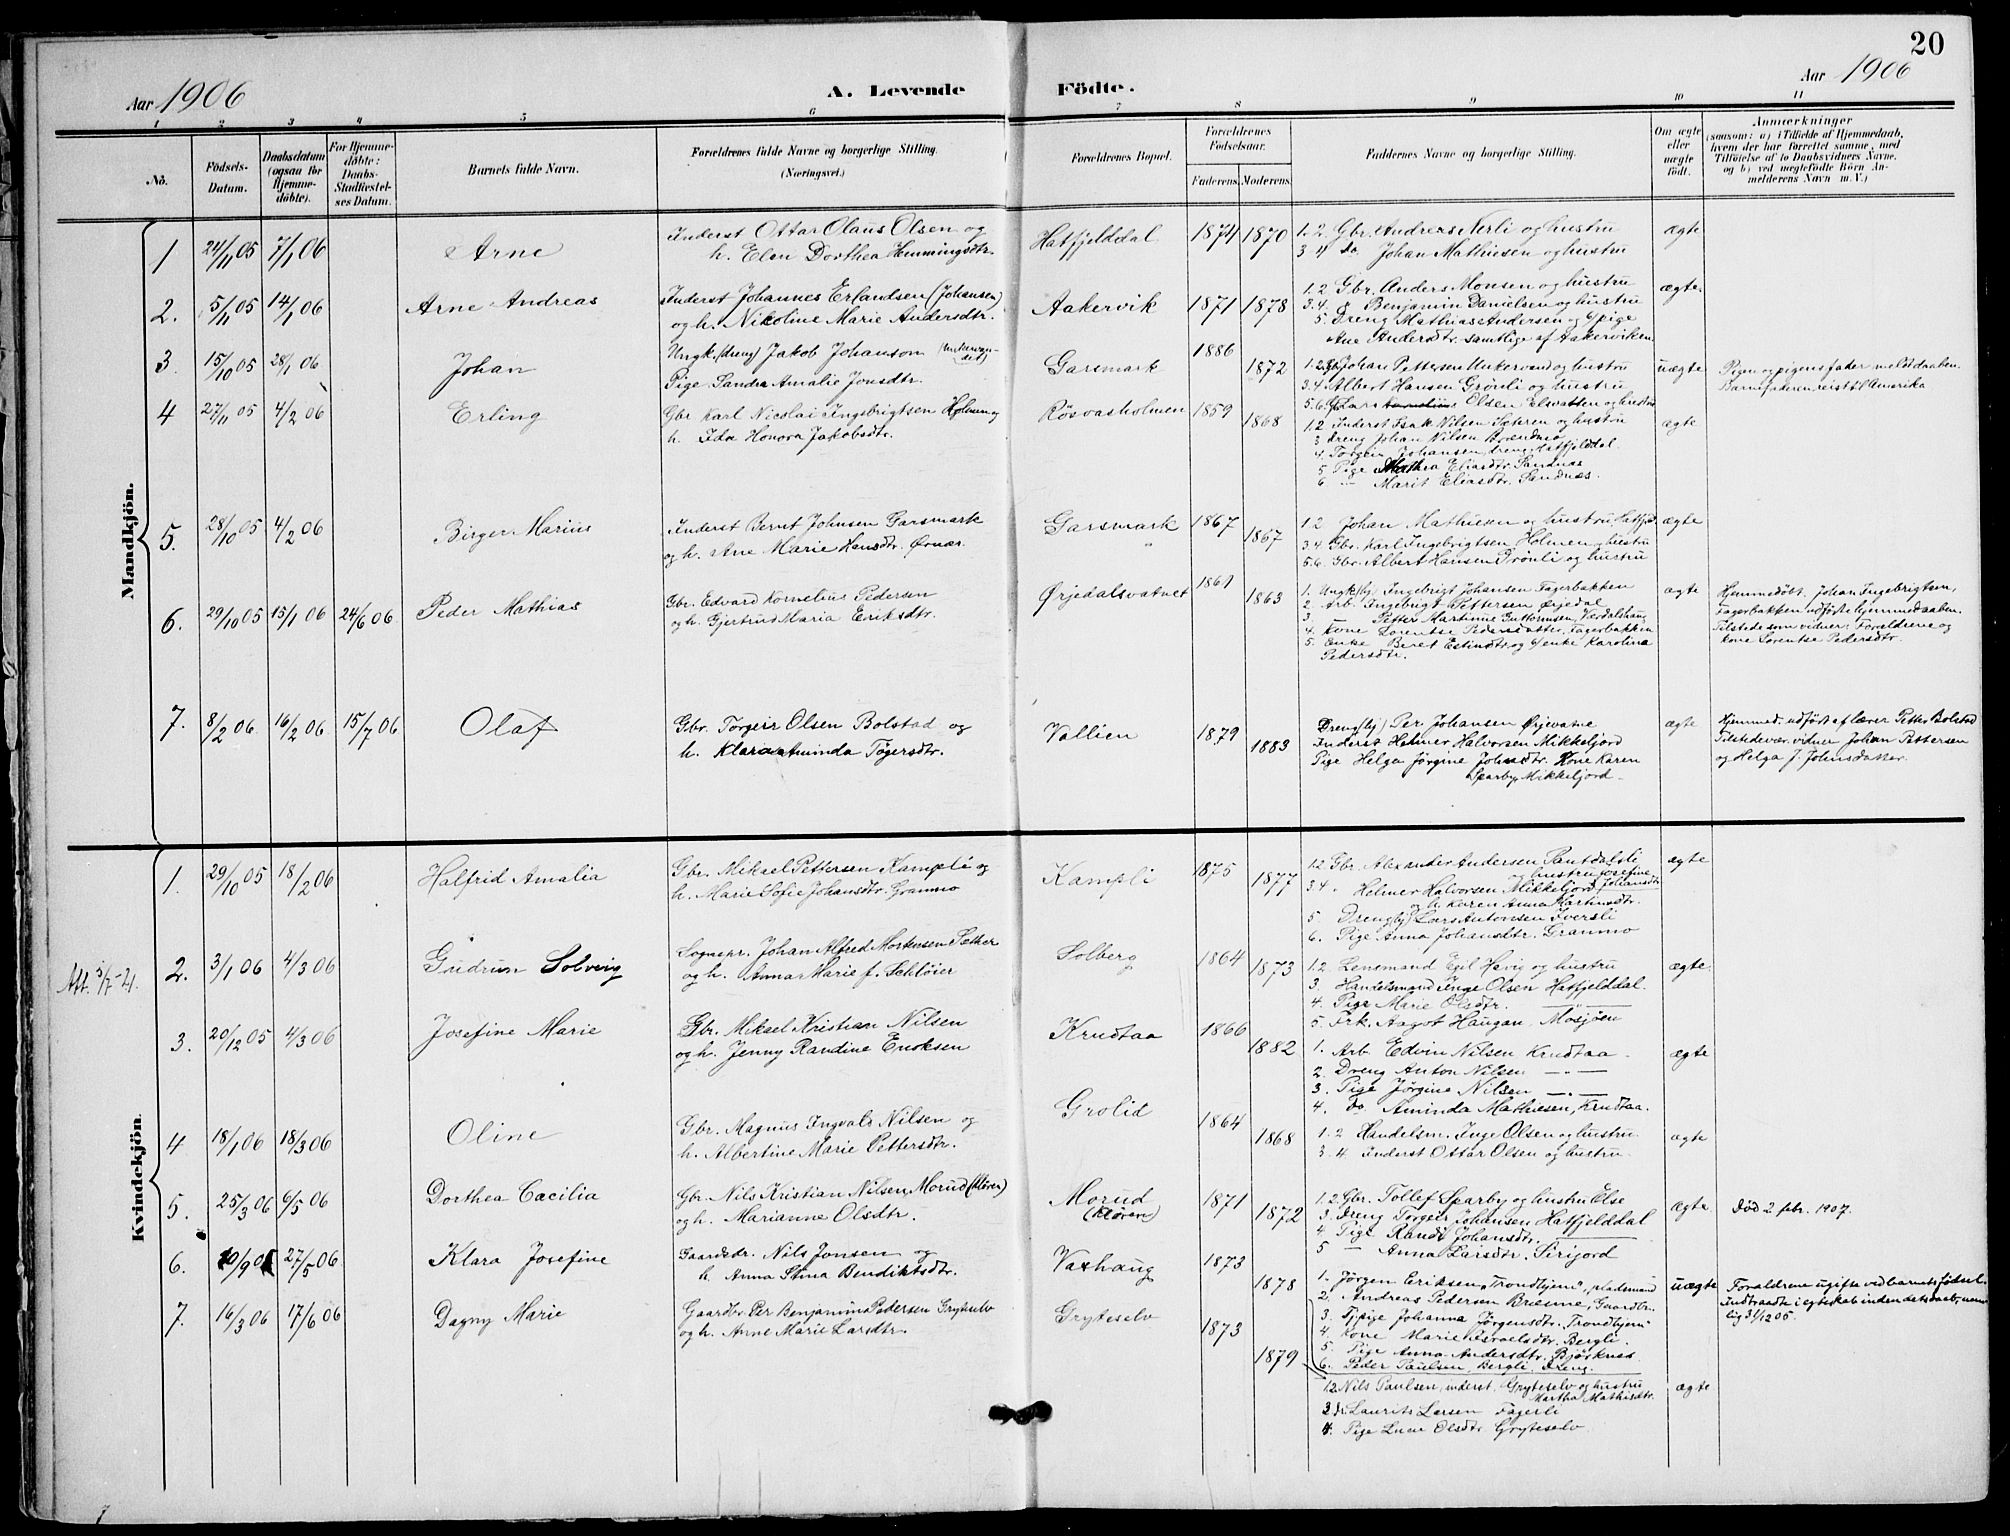 20
Aar 1906
A. Levende
Födte.
Aar 1906
1 2 3 4 5 6 7 8 9 10 11
No.
Födsels-
Datum.
Daabsdatum
(ogsaa for
Hjemme-
döbte).
For Hjemme-
döbte:
Daabs-
Stadfæstel-
ses Datum.
Barnets fulde Navn.
Forældrenes fulde Navne og borgerlige Stilling.
(Næringsvei.)
Forældrenes Bopæl.
Forældrenes
Födselsaar.
Faderens. Moderens.
Faddernes Navne og borgerlige Stilling.
Om ægte
eller
uægte
födt.
Anmærkninger
(saasom: a) i Tilfælde af Hjemmedaab,
hvem der har forrettet samme, med
Tilföielse af to Daabsvidners Navne,
og b) ved uægtefödte Börn An-
melderens Navn m. V.)
Mandkjön.
1 24/11 05 7/1 06 Arne
Inderst Ottar Olaus Olsen og
h. Elen Dorthea Hemmingsdtr.
Hatfjelddal 1874 1870
1.2. Gbr. Andreas Nerli og hustru
3 4 do Johan Mathiesen og hustru
ægte
2. 5/11 05 14/1 06 Arne Andreas
Inderst Johannes Erlandsen (Johansen)
og h. Nicoline Marie Andersdtr.
Aakervik 1871 1878
1.2 Gbr. Anders Monsen og hustru
3.4. " Benjamin Danielsen og hustru
5. Dreng Mathias Andersen og Pige
Ane Andersdtr. samtlige af Aakerviken
ægte.
3. 15/10 05 28/1 06 Johan
Ungk. (dreng) Jakob Johanson
Pige Sandra Amalie Jonsdtr.
Garsmark 1886 1872
1.2 Gb Johan Pettersen Unkervand og hustru
3.4 Albert Hansen Grönli og hustru
5.6. Lars Olsen Elsvatten og hustru
uægte
Pigen og pigens fader meldt daaben.
Barnefaderen reist til Amerika
4 27/11 05 4/2 06 Erling
Gbr Karl Nicolai Ingebrigtsen Holmen og
h. Ida Honora Jakobsdtr.
Rösvasholmen 1859 1868
1.2 Inderst Isak Nilsen Sætren og hustru
3 Dreng Johan Nilsen Brændmo
4. Torgeir Johansen, dreng, Hatfjelddal.
5. Pige Mathea Eliasdtr. Sandnæs
6 " Marit Eliasdtr. Sandnæs.
ægte
5. 28/10 05 4/2 06 Birger Marius
Inderst Bernt Johnsen Garsmark
og h. Ane Marie Hansdtr. Ørnæs.
Garsmark 1867 1867
1 2 Johan Mathiesen og hustru, Hatfjd.
3.4. Gbr. Karl Ingebrigtsen Holmen og hustru
5.6. Gbr. Albert Hansen Grönli og hustru
ægte
6. 29/10 05 15/1 06 24/6 06 Peder Mathias
Gbr. Edvard Kornelius Pedersen
og h. Gjertrud Maria Eriksdtr.
Ørjedalsvatnet 1861 1863
1. Ungk(by) Ingebrigt Johansen Fagerbakken
2. Arb. Ingebrigt Pettersen Ørjedal
3. — Petter Martinus Guttormsen, Værdalshaug
4. Kone Lorentse Pedersdatter, Fagerbakken
5. Enke Beret Estinsdtr. og enke Karolina
Pedersdtr.
ægte
Hjemmedöbt. Johan Ingebrigtsen,
Fagerbakken udförte hjemmedaaben.
Tilstede som vidner: Forældrene og
kone Lorentse Pedersdtr.
7. 8/2 06 16/2 06 15/7 06 Olaf
Gbr. Torgeir Olsen Bolstad og
h. Klara Aminda Tögersdtr.
Vallien 1879 1883
Dreng(by) Per Johansen Ørjevatne
Inderst Helmer Halvorsen Mikkeljord
Pige Helga Jörgine Johnsdtr. Kone Karen
Sparby, Mikkeljord.
ægte
Hjemmed. udfört af lærer Petter Bolstad
Tilstedevær. vidner Johan Pettersen
og Helga J. Johnsdatter.
Kvindekjön.
1. 29/10 05 18/2 06 Halfrid Amalia
Gbr. Mikael Pettersen Kampli og
h. Marie Sofie Johansdtr. Granmo
Kampli 1875 1877
1 2 Gbr. Alexander Andersen Pantdalsli
og hustru Josefine Johansdtr
3.4. " Helmer Halvorsen Mikkeljord
og h. Karen Anna Martinsdtr.
5. Dreng(by) Lars Antonsen Iversli
6. Pige Anna Johansdtr. Granmo
ægte
Att. 3/7-21.
2. 3/1 06 4/3 06 Gudrun Solveig
Sognepr. Johan Alfred Mortensen Sæther
og h. Anna Marie f. Schlöier
Solberg 1864 1873
1.2. Lensmand Egil Hevig og hustru
3. Handelsmand Inge Olsen Hatfjelddal.
4. Pige Marie Olsdtr. —"—
5. Frk. Aagot Haugan, Mosjöen
ægte.
3. 20/12 05 4/3 06 Josefine Marie
Gbr. Mikael Kristian Nilsen
og h. Jenny Randine Enoksen
Krudtaa 1866 1882
1. Arb. Edvin Nilsen Krudtaa.
2. Dreng Anton Nilsen —"—
3. Pige Jörgine Nilsen —"—
4. do Aminda Mathiesen, Krudtaa.
ægte
4 18/1 06 18/3 06 Oline
Gbr. Magnus Ingvald Nilsen og
h. Albertine Marie Pettersdtr.
Grolid 1864 1868
1.2 Handelsm. Inge Olsen og hustru.
3.4. Inderst Ottar Olsen og hustru.
ægte
5. 25/3 06 6/5 06 Dorthea Cæcilia
Gbr. Nils Kristian Nilsen, Morud (Kløren)
og h. Marianne Olsdtr.
Morud
(Kløren)
1871 1872
1.2. Gbr. Tollef Sparby og hustru Else
3. Dreng Torgeir Johansen Hatfjelddal
4 Pige Randi Johansdtr. ——
5 — Anna Larsdtr. Sirijord
ægte
Död 2 febr. 1907.
6. 10/9 05 27/5 06 Klara Josefine
Gaardbr. Nils Jonsen og
h. Anna Stina Bendiktsdtr.
Vashaug 1873 1878
1. Jörgen Eriksen, Trondhjem", pladsmand
2. Andreas Pedersen Bræsme, Gaardbr.
3. Tjpige Johanna Jörgensdtr. "Trondhjem"
4. Kone Marie Israelsdtr. Bergli.
5. Pige Anna Andersdtr. Bjørknes
6. Peder Paulsen, Bergli, Dreng.
uægte
Forældrene ugifte ved barnets födsel.
Indtraadte i egteskab inden dets daab, nem-
lig 31/12 05.
7. 16/3 06 17/6 06 Dagny Marie
Gaardbr. Per Benjamin Pedersen Gryteselv
og h. Anne Marie Larsdtr.
Gryteselv 1873 1879
1 2. Nils Paulsen, inderst, Gryteselv og hustru
Martha Mathisdtr.
3 dr. Laurits Larsen Fagerli
4. Pige Lucie Olsdtr Gryteselv
ægte